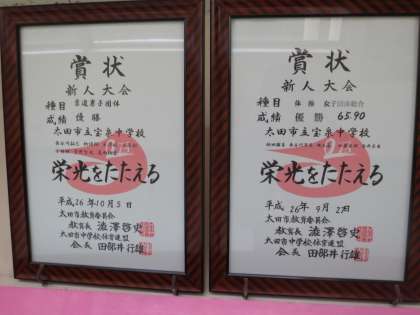 賞状
新人大会
種目 柔道男子団体
成績 優勝
太田市立宝泉中学校
栄光をたたえる
平成26年10月5日
太田市教育委員会
教育長 澁澤啓史
太田市中学校体育連盟
会長 田部井行雄
賞状
新人大会
種目 体操 女子団体総合
成績 優勝 65.90
太田市立宝泉中学校
栄光をたたえる
平成26年9月2日
太田市教育委員会
教育長 澁澤啓史
太田市中学校体育連盟
会長 田部井行雄